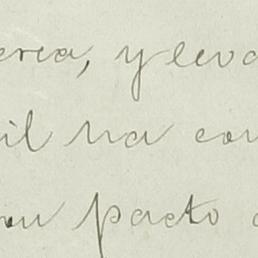 erea, y leva
il na con
un pacto